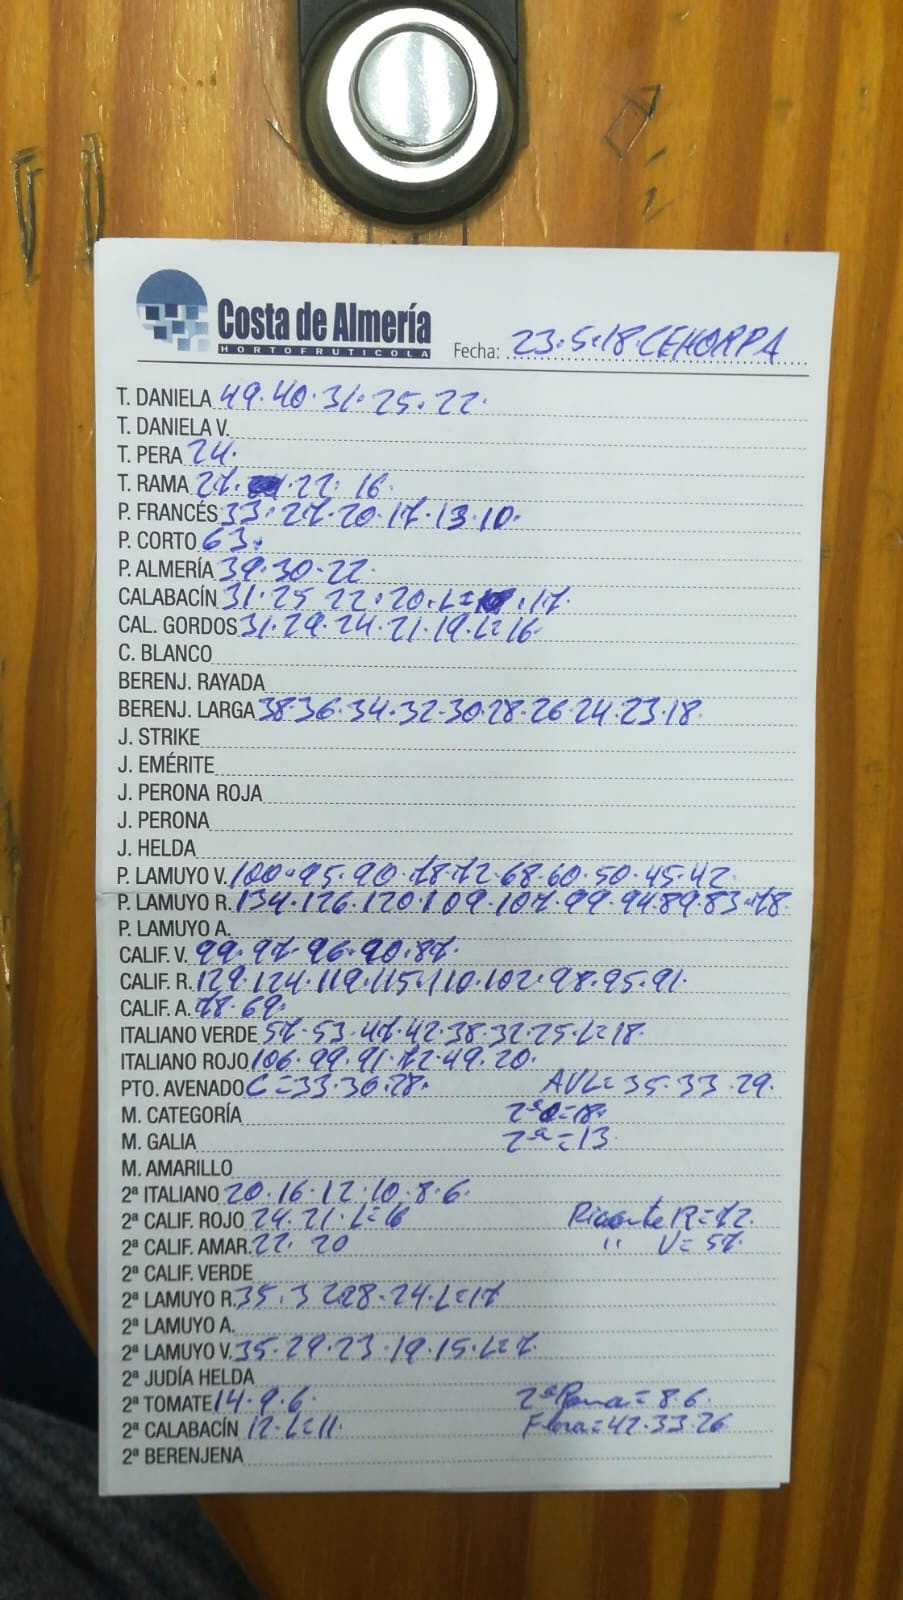 Costa de Almería
HORTOFRUTICOLA
Fecha: 23.5.18.CEHORPA
T. DANIELA 49.40.31.25.22.
T. DANIELA V.
T. PERA 24.
T. RAMA 27. 22. 16.
P. FRANCÉS 33.27.20.17.13.10.
P. CORTO 63.
P. ALMERÍA 39.30.22.
CALABACÍN 31.25 22.20.L= .17.
CAL. GORDOS 31.29.24.21.19.L=16.
C. BLANCO
BERENJ. RAYADA
BERENJ. LARGA 38.36.34.32.30.28.26.24.23.18.
J. STRIKE
J. EMÉRITE
J. PERONA ROJA
J. PERONA
J. HELDA
P. LAMUYO V. 100.95.90.78.72.68.60.50.45.42.
P. LAMUYO R. 134.126.120.109.107.99.94.89.83.78.
P. LAMUYO A.
CALIF. V. 99.97.96.90.87.
CALIF. R. 129.124.119.115.110.102.98.95.91.
CALIF. A. 78.69.
ITALIANO VERDE 57.53.47.42.38.32.25.L=18.
ITALIANO ROJO 106.99.91.72.49.20.
PTO. AVENADO C=33.30.28. AVL=35.33.29.
M. CATEGORÍA 2ª =18.
M. GALIA 2ª=13.
M. AMARILLO
2ª ITALIANO 20.16.12.10.8.6.
2ª CALIF. ROJO 24.21.L=16 Picante R=72.
2ª CALIF. AMAR. 22. 20 " V=57.
2ª CALIF. VERDE
2ª LAMUYO R. 35.32.28.24.L=17
2ª LAMUYO A.
2ª LAMUYO V. 35.29.23.19.15.L=7.
2ª JUDÍA HELDA
2ª TOMATE 14.9.6. 2ª = 8.6.
2ª CALABACÍN 12.L=11. Flora=42.33.26
2ª BERENJENA